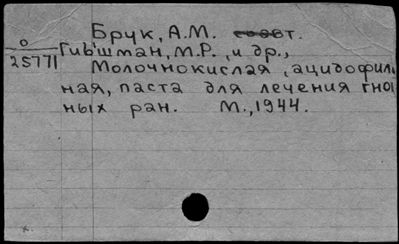 Брук, А.М. соавт.
о
25771
Гивишман, М.Р., и др.,
Молочнокислая, ацидофиль
ная, паста для лечения гной
ных ран. М., 1944.